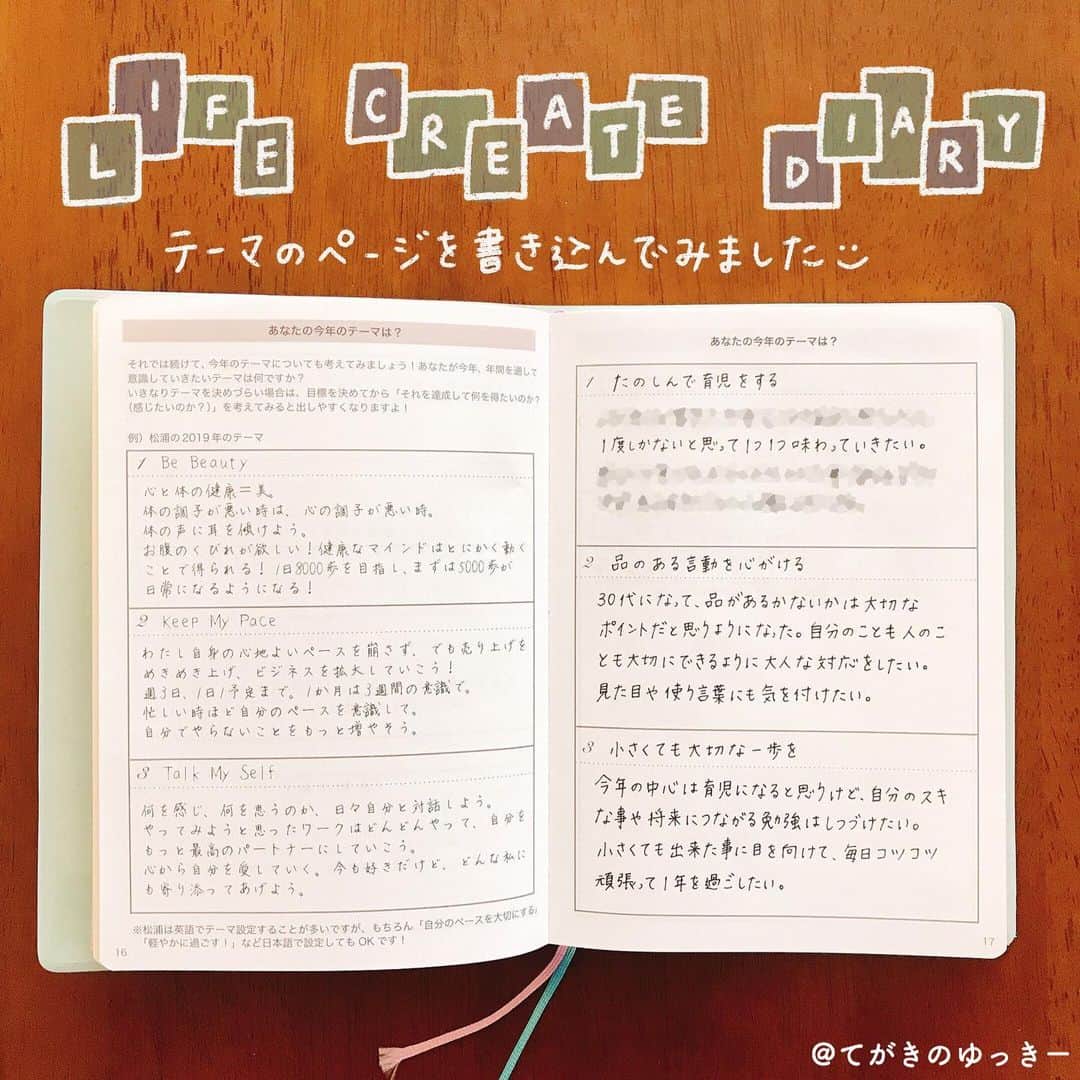 LIFE CREATE DIARY
テーマのページを書き込んでみました
あなたの今年のテーマは？
それでは続けて、今年のテーマについても考えてみましょう！あなたが今年、年間を通して
意識していきたいテーマは何ですか？
いきなりテーマを決めづらい場合は、目標を決めてから「それを達成して何を得たいのか？
（感じたいのか？）」を考えてみると出しやすくなりますよ！
例）松浦の2019年のテーマ
1 Be Beauty
心と体の健康＝美。
体の調子が悪い時は、心の調子が悪い時。
体の声に耳を傾けよう。
お腹のくびれが欲しい！健康なマインドはとにかく動く
ことで得られる！1日8000歩を目指し、まずは5000歩が
日常になるようになる！
2 Keep My Pace
わたし自身の心地よいペースを崩さず、でも売り上げを
めきめき上げ、ビジネスを拡大していこう！
週3日、1日1予定まで。1か月は3週間の意識で。
忙しい時ほど自分のペースを意識して。
自分でやらないことをもっと増やそう。
3 Talk My Self
何を感じ、何を思うのか、日々自分と対話しよう。
やってみようと思ったワークはどんどんやって、自分を
もっと最高のパートナーにしていこう。
心から自分を愛していく。今も好きだけど、どんな私に
も寄り添ってあげよう。
※松浦は英語でテーマ設定することが多いですが、もちろん「自分のペースを大切にする」
「軽やかに過ごす！」など日本語で設定してもOKです！
16
あなたの今年のテーマは？
1 たのしんで育児をする
1度しかないと思って1つ1つ味わっていきたい。
2 品のある言動を心がける
30代になって、品があるかないかは大切な
ポイントだと思うようになった。自分のことも人のこ
とも大切にできるように大人な対応をしたい。
見た目や使う言葉にも気を付けたい。
3 小さくても大切な一歩を
今年の中心は育児になると思うけど、自分のスキ
な事や将来につながる勉強はしつづけたい。
小さくても出来た事に目を向けて、毎日コツコツ
頑張って1年を過ごしたい。
17
@てがきのゆっきー